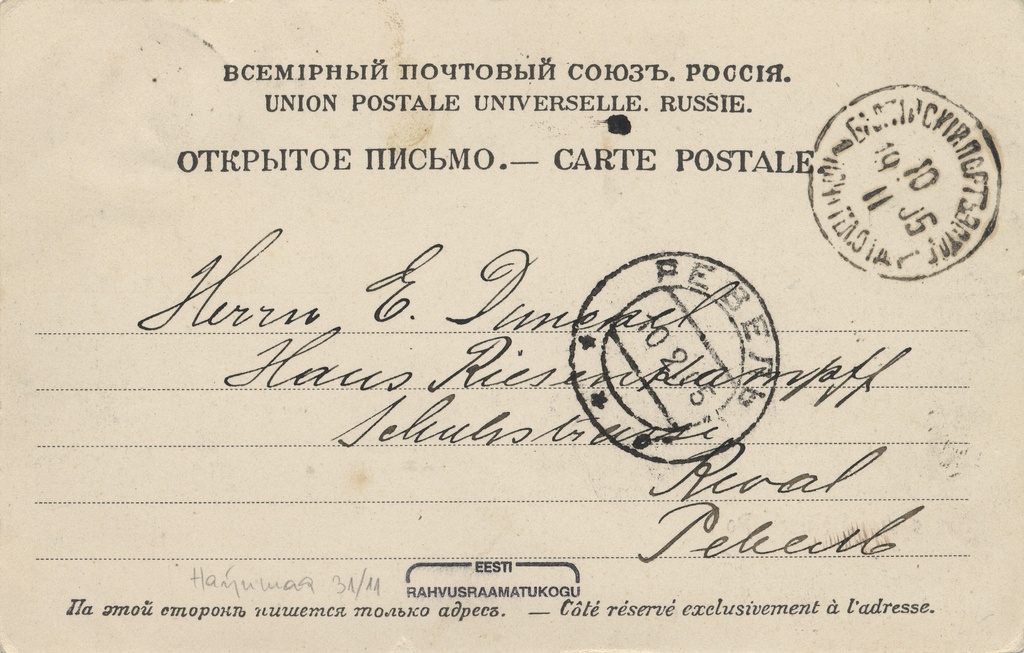 ВСЕМІРНЫЙ ПОЧТОВЫЙ СОЮЗЪ. РОССІЯ.
UNION POSTALE UNIVERSELLE. RUSSIE.
ОТКРЫТОЕ ПИСЬМО.— CARTE POSTALE
10
19 05
11
РЕВЕЛЬ
Herrn E.
Haus Riesenkampff
Reval
Ревель
31/11
EESTI
RAHVUSRAAMATUKOGU
На этой сторонѣ пишется только адресъ. — Côté réservé exclusivement à l'adresse.